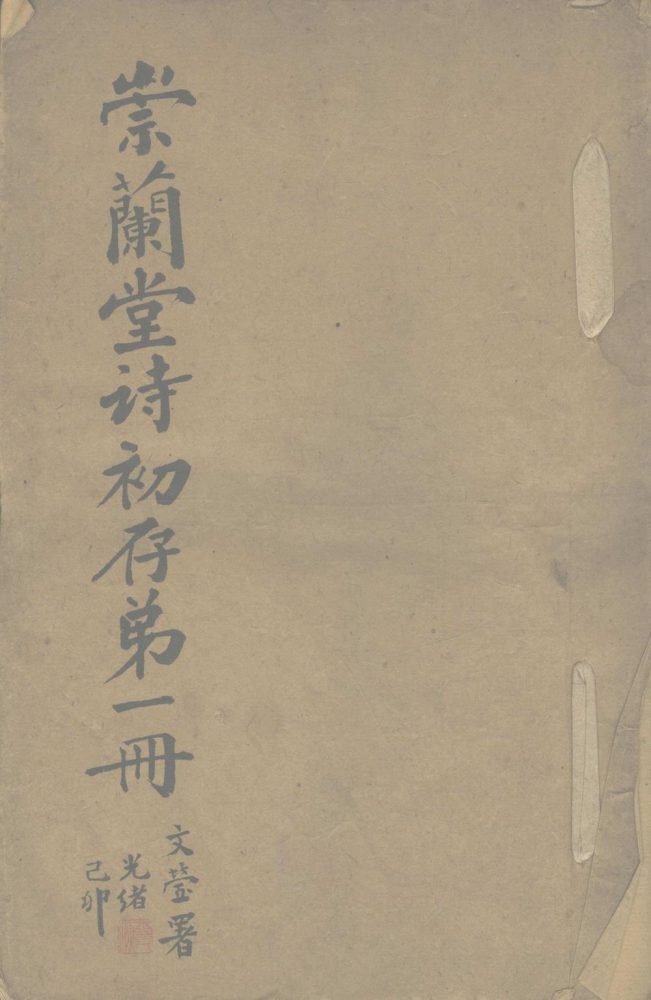 崇蘭堂诗初存弟一冊
文瑩署
光緒
己卯